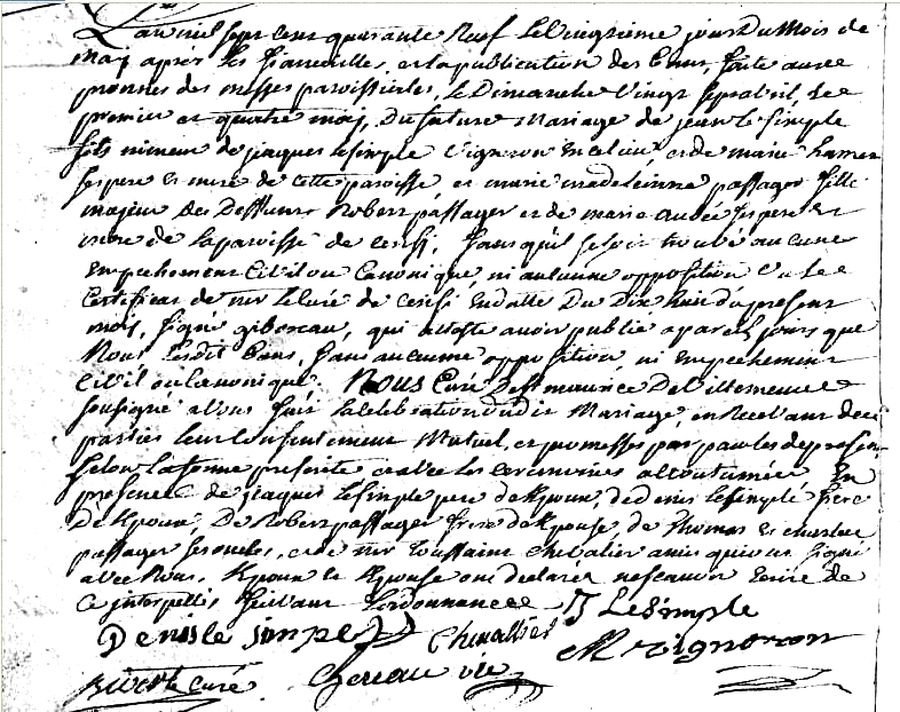 L'an mil sept cent quarante Neuf Le Vingtieme jour Du Mois de
May après Les fiancailles, et la publication des bans, faite aux
prônnes des messes paroissiales, Le Dimanche Vingt sept avril, Les
premier et quatre may, Du future Mariage de jean Le simple
fils mineur de jaques Lesimple Vigneron En ce lieu, et de marie hamen
ses pere et mere de cette paroisse et marie madeleinne passager fille
majeur des Deffunts Robert passager et de marie audée ses pere et
mere de la paroisse de cerfs, sans qu'il se soit trouvé aucune
Empechement Civil ou Canonique, ni aucunne opposition Vu Le
Certificat de mr Le Curé de En datte Du Dix huit du present
mois, signé giboreau, qui atteste avoir publié a pareils jours que
Nous Lesdit bans, sans aucunne opposition, ni empechement
Civil ou Canonique. Nous Curé De st maurice De
soussigné avons fait La celebration dudit Mariage, en Recevant des
parties Leur Consentement Mutuel, et promesses par paroles de present
selon La forme prescrite et avec les ceremonies accoutumées En
presence de jaques Lesimple pere de lepoux, de denis lesimple frere
De lepoux, De Robert passager frere de lepouse, de thomas et charles
passager ses oncles, et de mr toussaint chevalier amis qui ont signé
avec Nous. lepoux et lepouse ont declarés ne scavoir Ecrire de
Ce interpellés suivant Lordonnance J Lesimple
Denis le simple Chevallier
M vigneron
curé